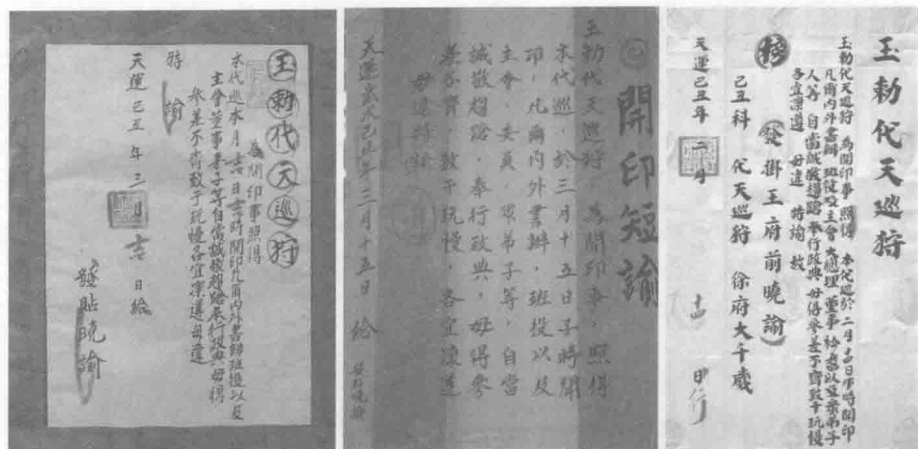 玉勅代天巡狩
為開印事照得
本代巡本月吉日吉時開印凡爾內外書辦班役以及
主會董事弟子等自當誠敬趨蹌奉行政典毋得
參差不齊致于玩慢各宜凜遵毋違
特諭
天運己丑年三月吉日給
發貼曉諭
開印短諭
玉勅代天巡狩,為開印事,照得
本代巡,於三月十五日子時開
印,凡爾內外書辦,班役以及
主會,委員,眾弟子等,自當
誠敬趨蹌,奉行政典,毋得參
差不齊,致干玩慢,各宜凜遵
毋違特諭
天運歲次己丑年三月十五日 給 發貼曉諭
玉勅代天巡狩
玉勅代天巡狩 為開印事 照得 本代巡於二月十四日卯時開印
凡爾內外書辦 班役及主會 大總理 董事 以及眾弟子
人等 自當誠敬趨蹌 奉行政典 毋得參差不齊致干玩慢
各宜凜遵 毋違 特諭
榜 (發掛王府前曉諭)
己丑科 代天巡狩 徐府大千歲
天運己丑年二月 十四 日行